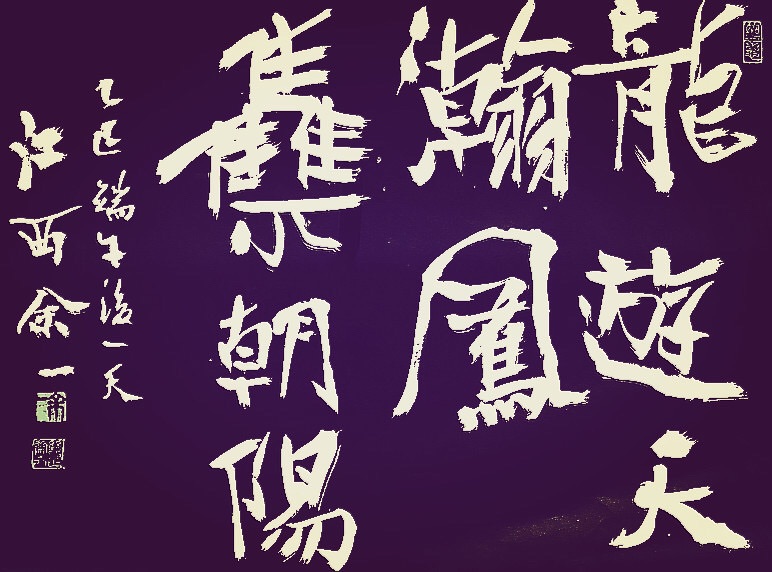 龍遊天
瀚鳳
雧朝陽
乙巳端午後一天
江西余一